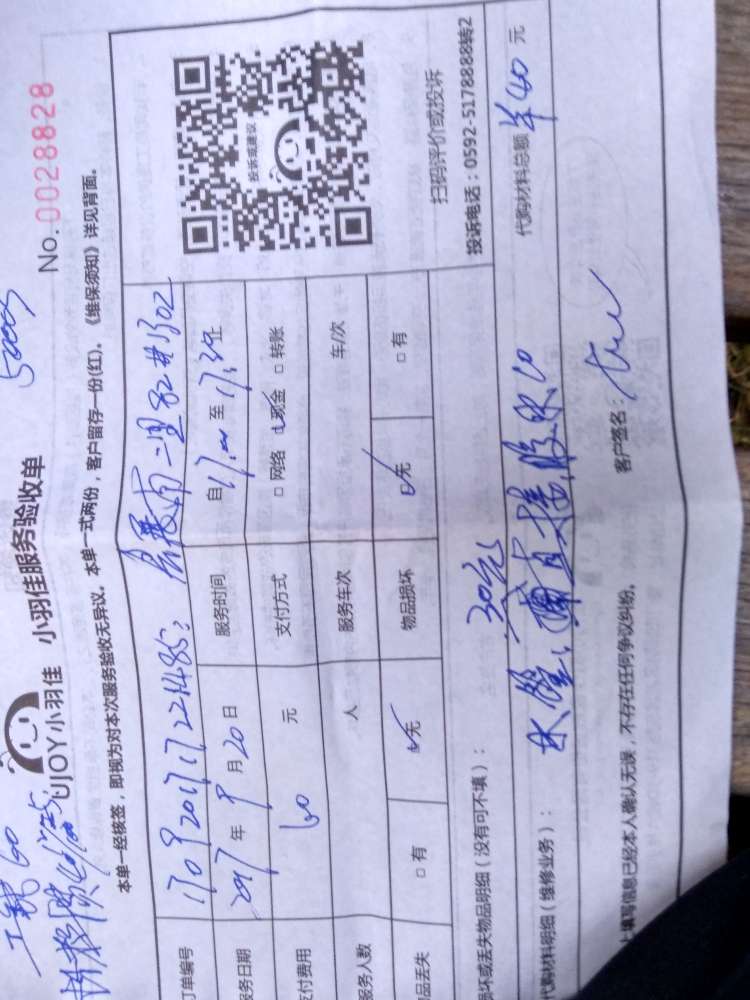 工钱60
5000
UJOY小羽佳 小羽佳服务验收单
No. 0028828
本单一经核签，即视为对本次服务验收无异议。本单一式两份，客户留存一份(红)。《维保须知》详见背面。
订单编号
服务日期 2017 年 9 月 20 日 服务时间 自 17:00 至 17:30 止
支付费用 60 元 支付方式 □ 网络 ☑ 现金 □ 转账
服务人数 人 服务车次 车/次
物品丢失 □ 有 ☑ 无 物品损坏 ☑ 无 □ 有
投诉或建议
扫码评价或投诉
投诉电话：0592-5178888转2
损坏或丢失物品明细（没有可不填）：
30元
代购材料明细（维修业务）： 水管、直接 胶水10 代购材料总额 ￥40 元
以上填写信息已经本人确认无误，不存在任何争议纠纷。 客户签名：